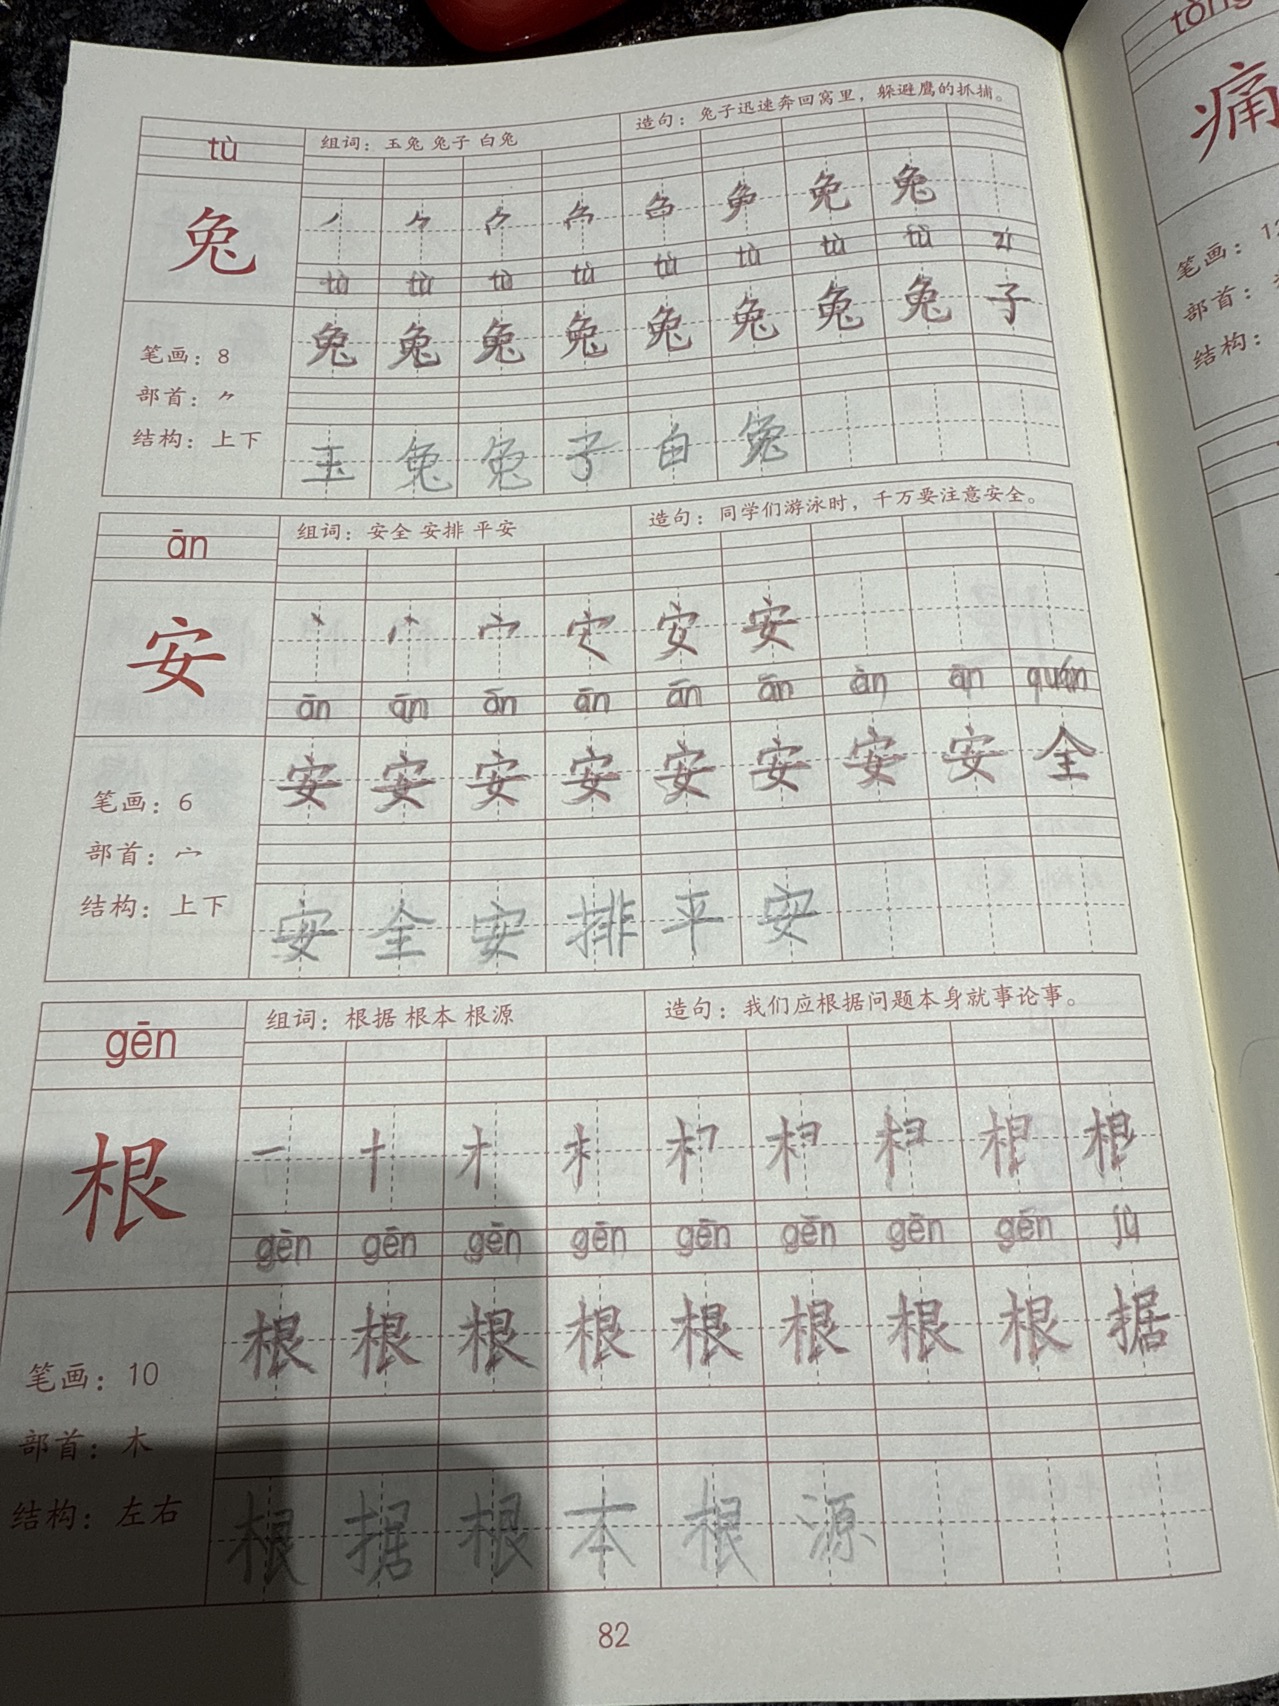 tù
组词：玉兔 兔子 白兔
造句：兔子迅速奔回窝里，躲避鹰的抓捕。
兔
兔 兔
tù tù tù tù tù tù tù tù zi
兔 兔 兔 兔 兔 兔 兔 兔 子
笔画：8
部首：⺈
结构：上下
玉 兔 兔 子 白 兔
ān
组词：安全 安排 平安
造句：同学们游泳时，千万要注意安全。
安
丶 宀 安 安
ān ān ān ān ān ān ān ān quán
安 安 安 安 安 安 安 安 全
笔画：6
部首：宀
结构：上下
安 全 安 排 平 安
gēn
组词：根据 根本 根源
造句：我们应根据问题本身就事论事。
根
一 十 才 木 根
gēn gēn gēn gēn gēn gēn gēn gēn jù
根 根 根 根 根 根 根 根 据
笔画：10
部首：木
结构：左右
根 据 根 本 根 源
82
tòng
痛
笔画：12
部首：
结构：